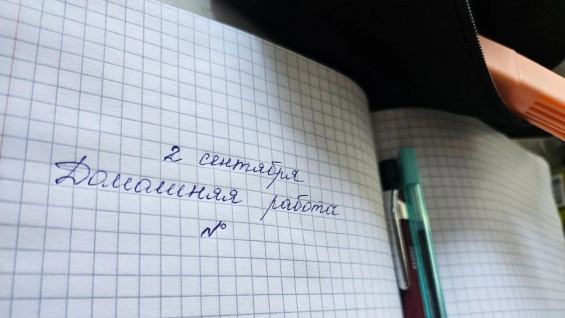 2 сентября
Домашняя работа
№